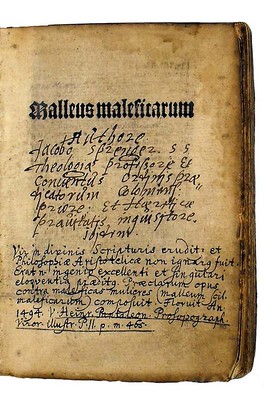 Malleus maleficarum
Authore
Jacobo Sprenger. S S
Theologiæ professore Et
Conventus Ordinis præ
dicatorum Coloniens:
priore: Et Hæreticæ
pravitatis inquisitore.
Vir in divinis Scripturis erudit⁹ et
Philosophiæ Aristotelicæ non ignarus fuit.
Erat n. ingenio excellenti et singulari
eloquentia prædit⁹. Præclarum opus
contra maleficas mulieres (malleum scil.
maleficarum) composuit. Floruit An.
1494. V. Heinr. Pantaleon. Prosopograph.
Viror. illustr. P. II. p. m. 465.